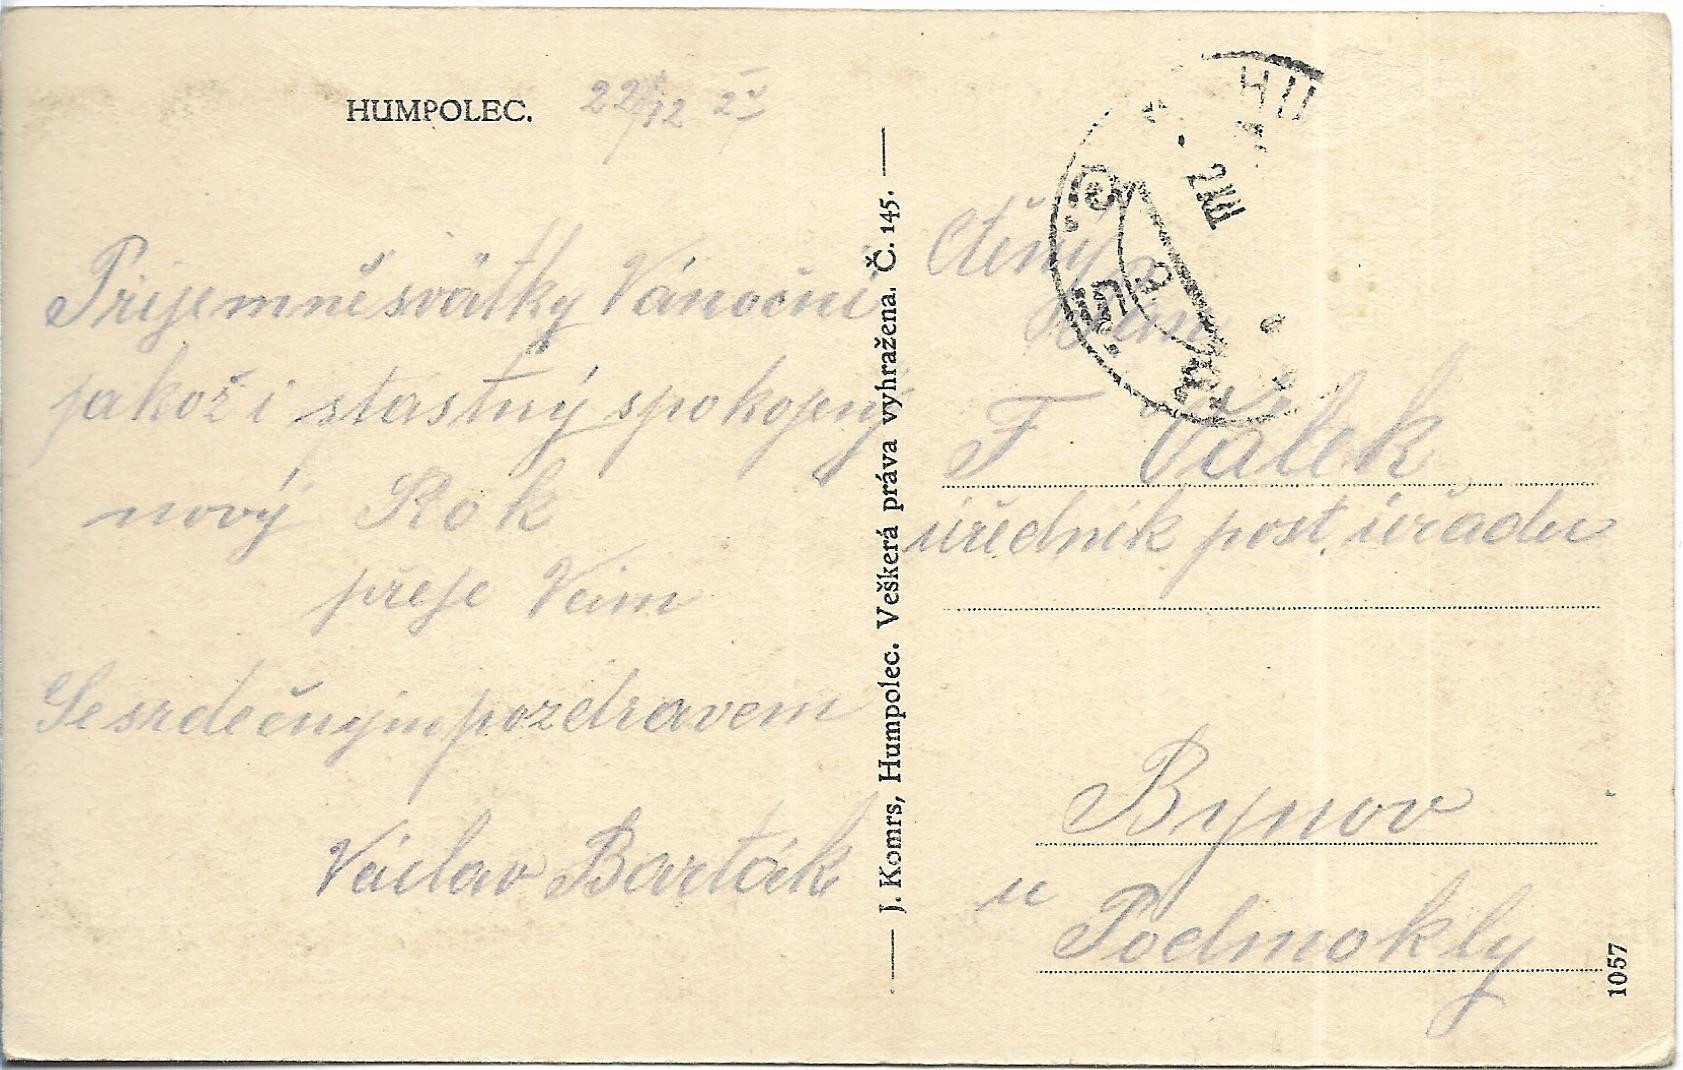 HUMPOLEC.
22/12
Prijemné svátky Vánoční
jakož i stastný spokojený
nový Rok
přeje Vám
Se srdečným pozdravem
Václav Barták
J. Komrs, Humpolec. Veškerá práva vyhražena. Č. 145.
Ctěný
Pán
F Válek
úředník post. úřadu
Bynov
u
Podmokly
1057
HU